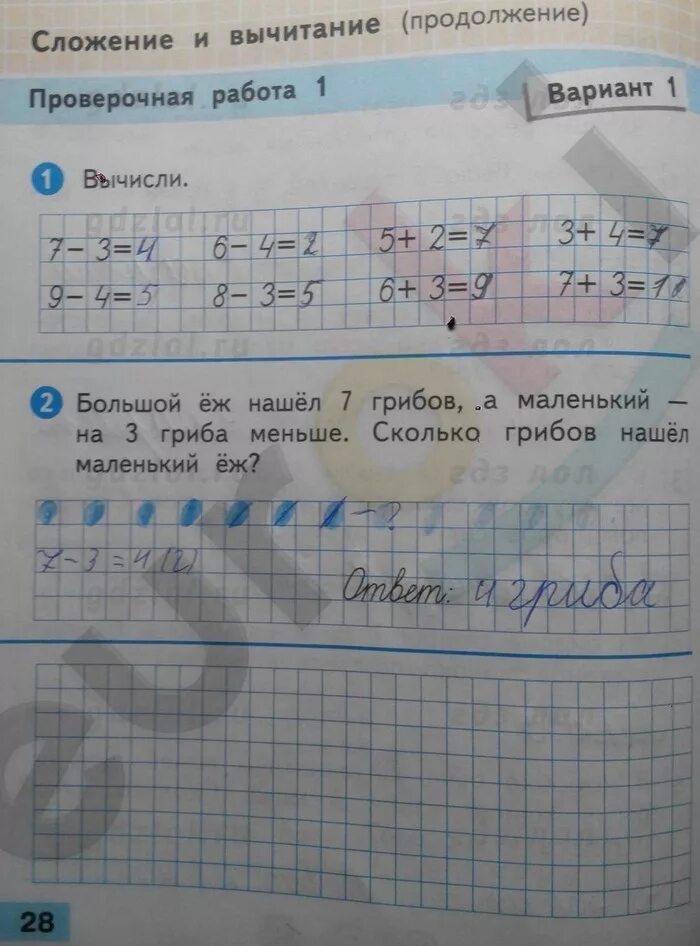 Сложение и вычитание (продолжение)
Проверочная работа 1
Вариант 1
1 Вычисли.
7 − 3 = 4 6 − 4 = 2 5 + 2 = 7 3 + 4 = 7
9 − 4 = 5 8 − 3 = 5 6 + 3 = 9 7 + 3 = 10
2 Большой ёж нашёл 7 грибов, а маленький —
на 3 гриба меньше. Сколько грибов нашёл
маленький ёж?
− ?
7 − 3 = 4 (г)
Ответ: 4 гриба
28